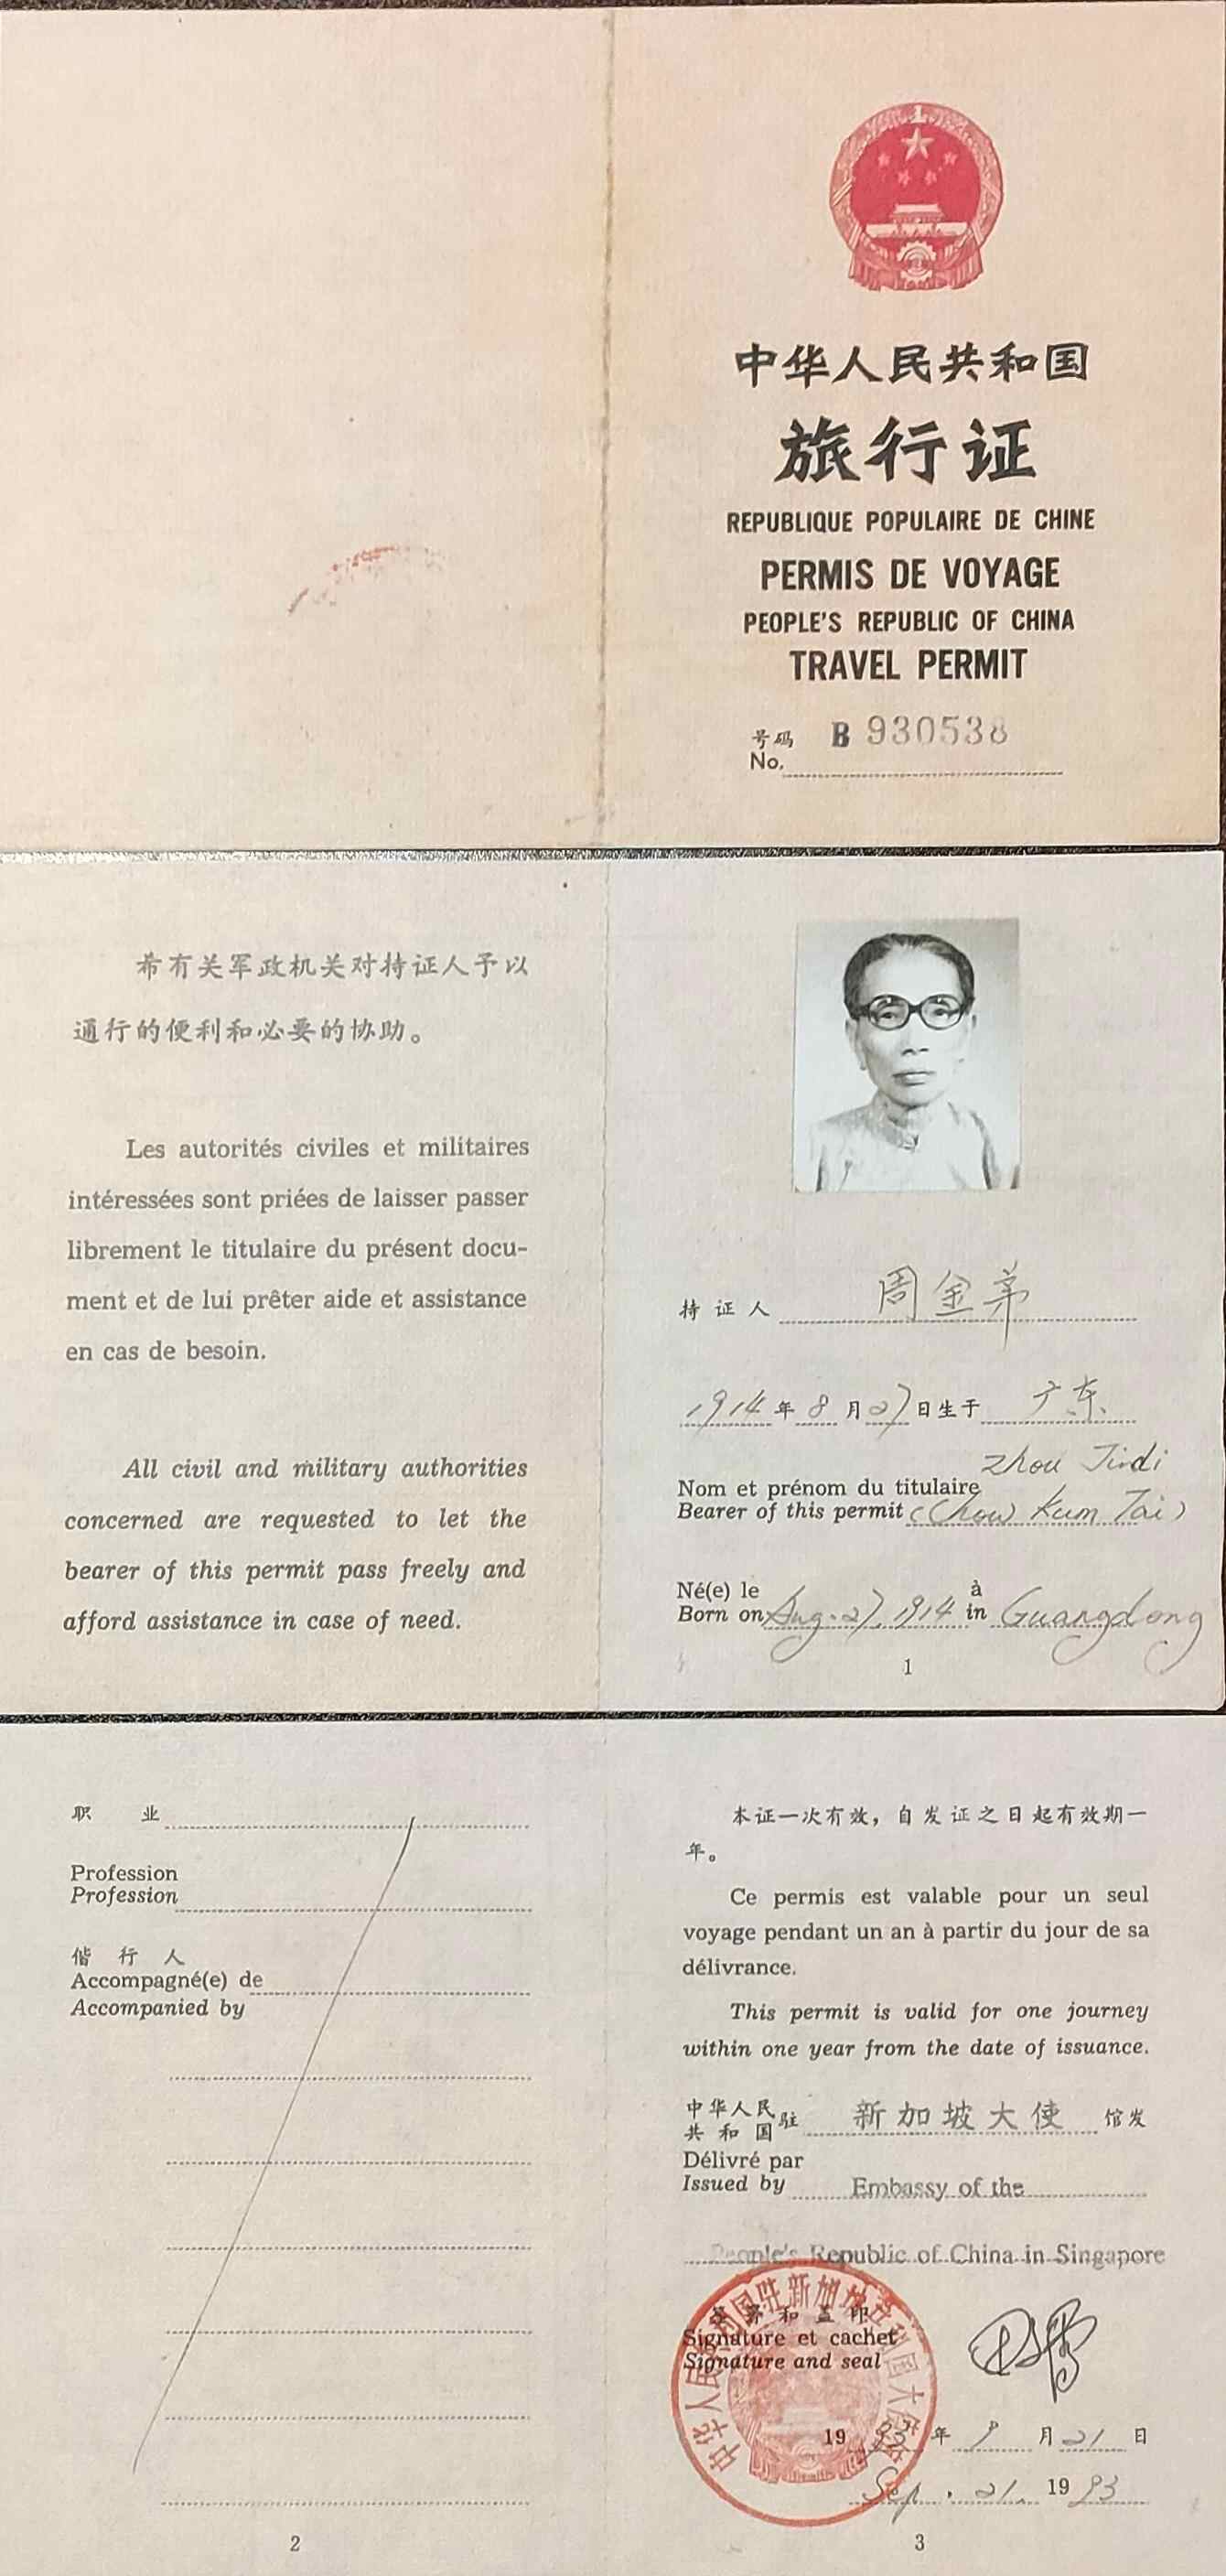 中华人民共和国
旅行证
REPUBLIQUE POPULAIRE DE CHINE
PERMIS DE VOYAGE
PEOPLE'S REPUBLIC OF CHINA
TRAVEL PERMIT
号码 B 930538
No.
希有关军政机关对持证人予以
通行的便利和必要的协助。
Les autorités civiles et militaires
intéressées sont priées de laisser passer
librement le titulaire du présent docu-
ment et de lui prêter aide et assistance
en cas de besoin.
All civil and military authorities
concerned are requested to let the
bearer of this permit pass freely and
afford assistance in case of need.
持证人 周金弟
1914年8月27日生于 广东
Zhou Jindi
Nom et prénom du titulaire
Bearer of this permit (Chow Kum Tai)
Né(e) le à
Born on Aug. 27, 1914 in Guangdong
1
职业
Profession
Profession
偕行人
Accompagné(e) de
Accompanied by
2
本证一次有效，自发证之日起有效期一
年。
Ce permis est valable pour un seul
voyage pendant un an à partir du jour de sa
délivrance.
This permit is valid for one journey
within one year from the date of issuance.
中华人民
共和国驻 新加坡大使 馆发
Délivré par
Issued by Embassy of the
People's Republic of China in Singapore
签署和盖印
Signature et cachet
Signature and seal
中华人民共和国驻新加坡共和国大使馆
1993年9月21日
Sep. 21, 1993
3